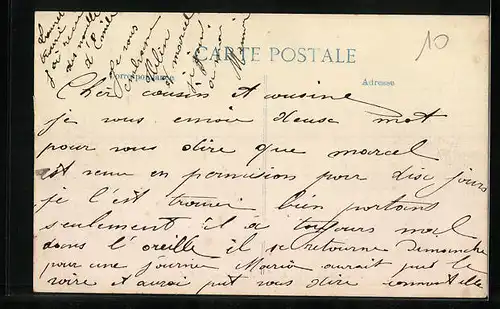 CARTE POSTALE
Correspondance
Adresse
10
Je vous
Cher cousin et cousine
je vous envoie deuse mot
pour vous dire que marcel
est venu en permision pour disc jours
je l'est trouver bien portans
seulement il à toujours mal
dans l'oreille il se retourne Dimanche
pour une journer Maria aurait put le
voire et aurai put vous dire comment elle